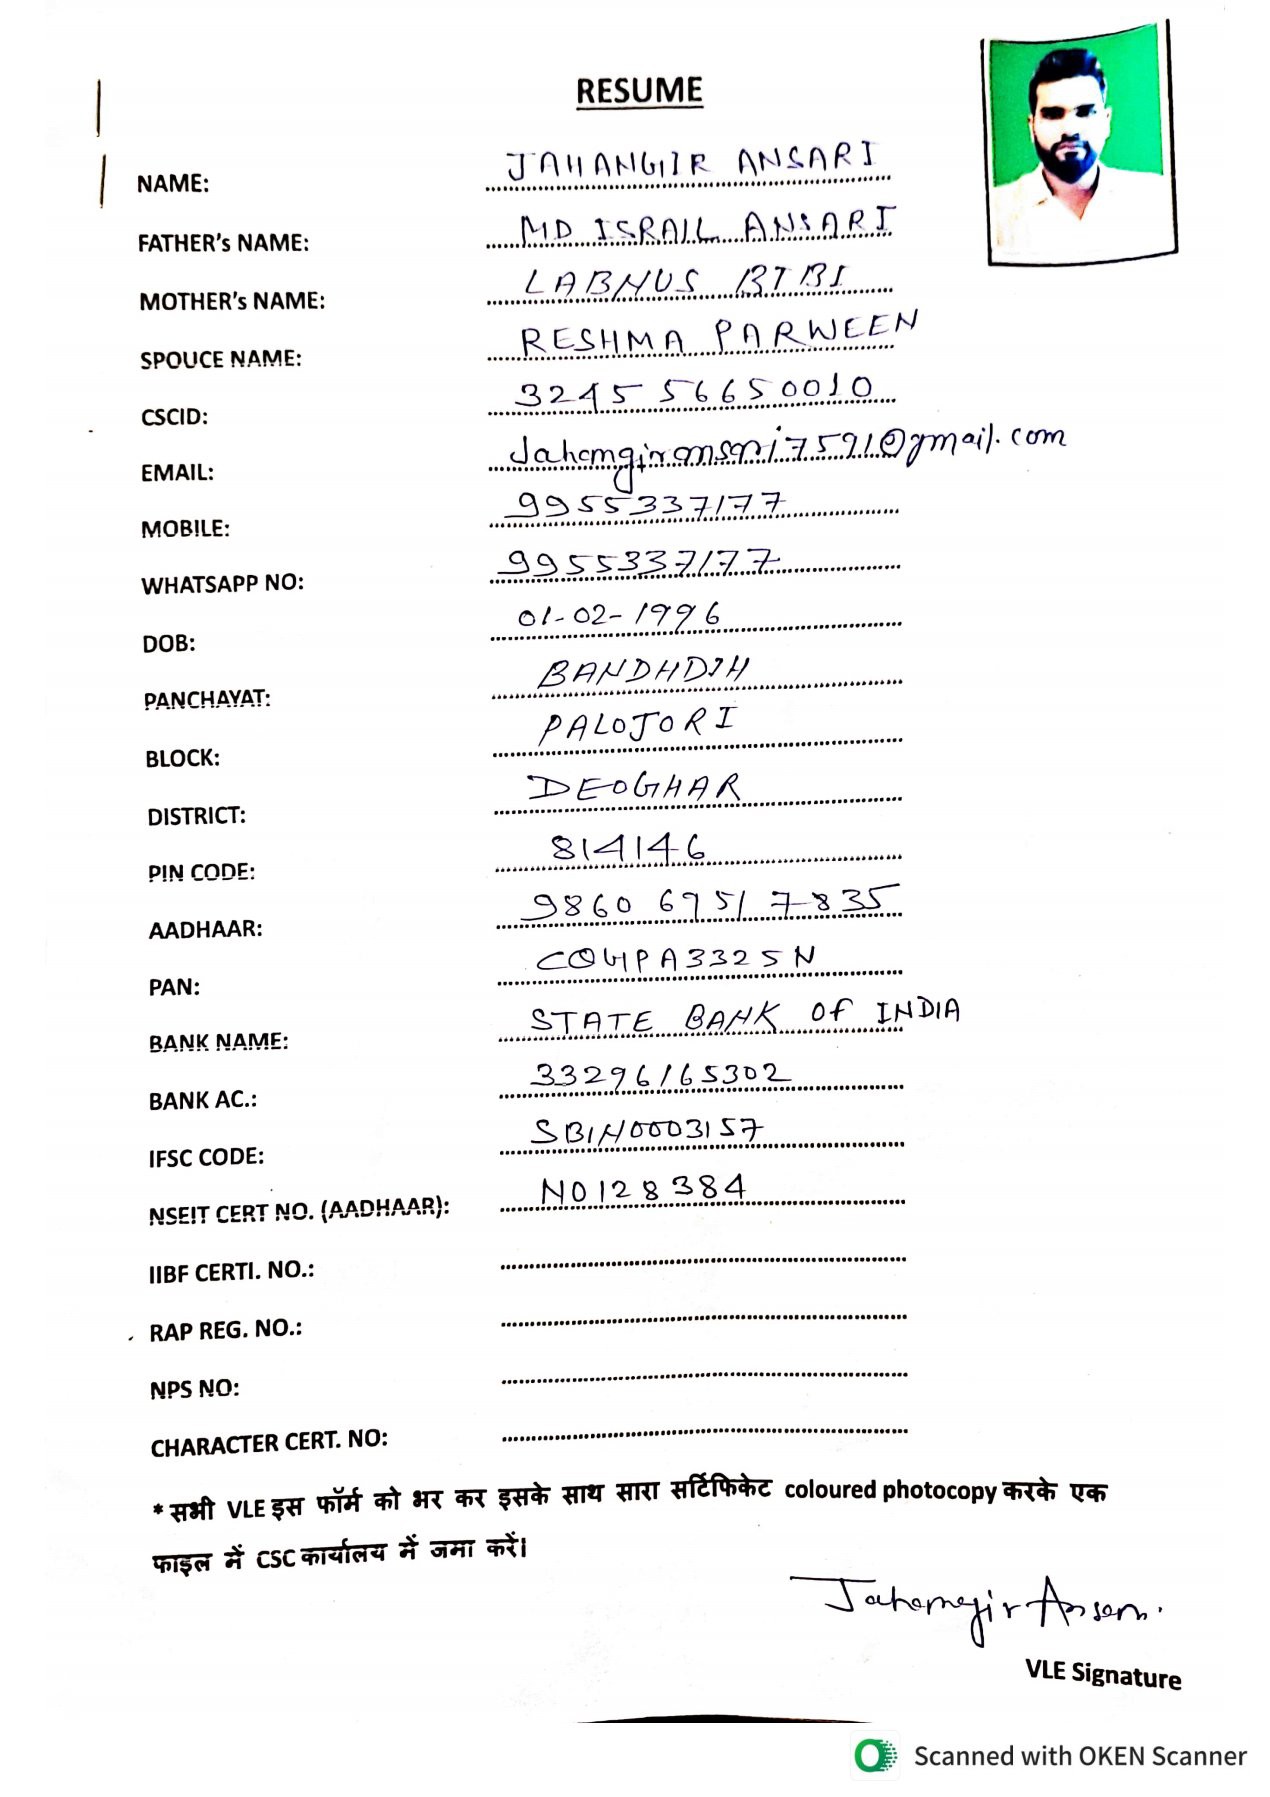 RESUME
NAME: JAHANGIR ANSARI
FATHER's NAME: MD ISRAIL ANSARI
MOTHER's NAME: LABNUS BIBI
SPOUCE NAME: RESHMA PARWEEN
CSCID: 3245 56650010
EMAIL: Jahangiransari7591@gmail.com
MOBILE: 9955337177
WHATSAPP NO: 9955337177
DOB: 01-02-1996
PANCHAYAT: BANDHDIH
BLOCK: PALOJORI
DISTRICT: DEOGHAR
PIN CODE: 814146
AADHAAR: 9860 6951 7835
PAN: COGPA3325N
BANK NAME: STATE BANK OF INDIA
BANK AC.: 33296165302
IFSC CODE: SBIN0003157
NSEIT CERT NO. (AADHAAR): N0128384
IIBF CERTI. NO.:
RAP REG. NO.:
NPS NO:
CHARACTER CERT. NO:
* सभी VLE इस फॉर्म को भर कर इसके साथ सारा सर्टिफिकेट coloured photocopy करके एक
फाइल में CSC कार्यालय में जमा करें।
Jahangir Ansari
VLE Signature
Scanned with OKEN Scanner